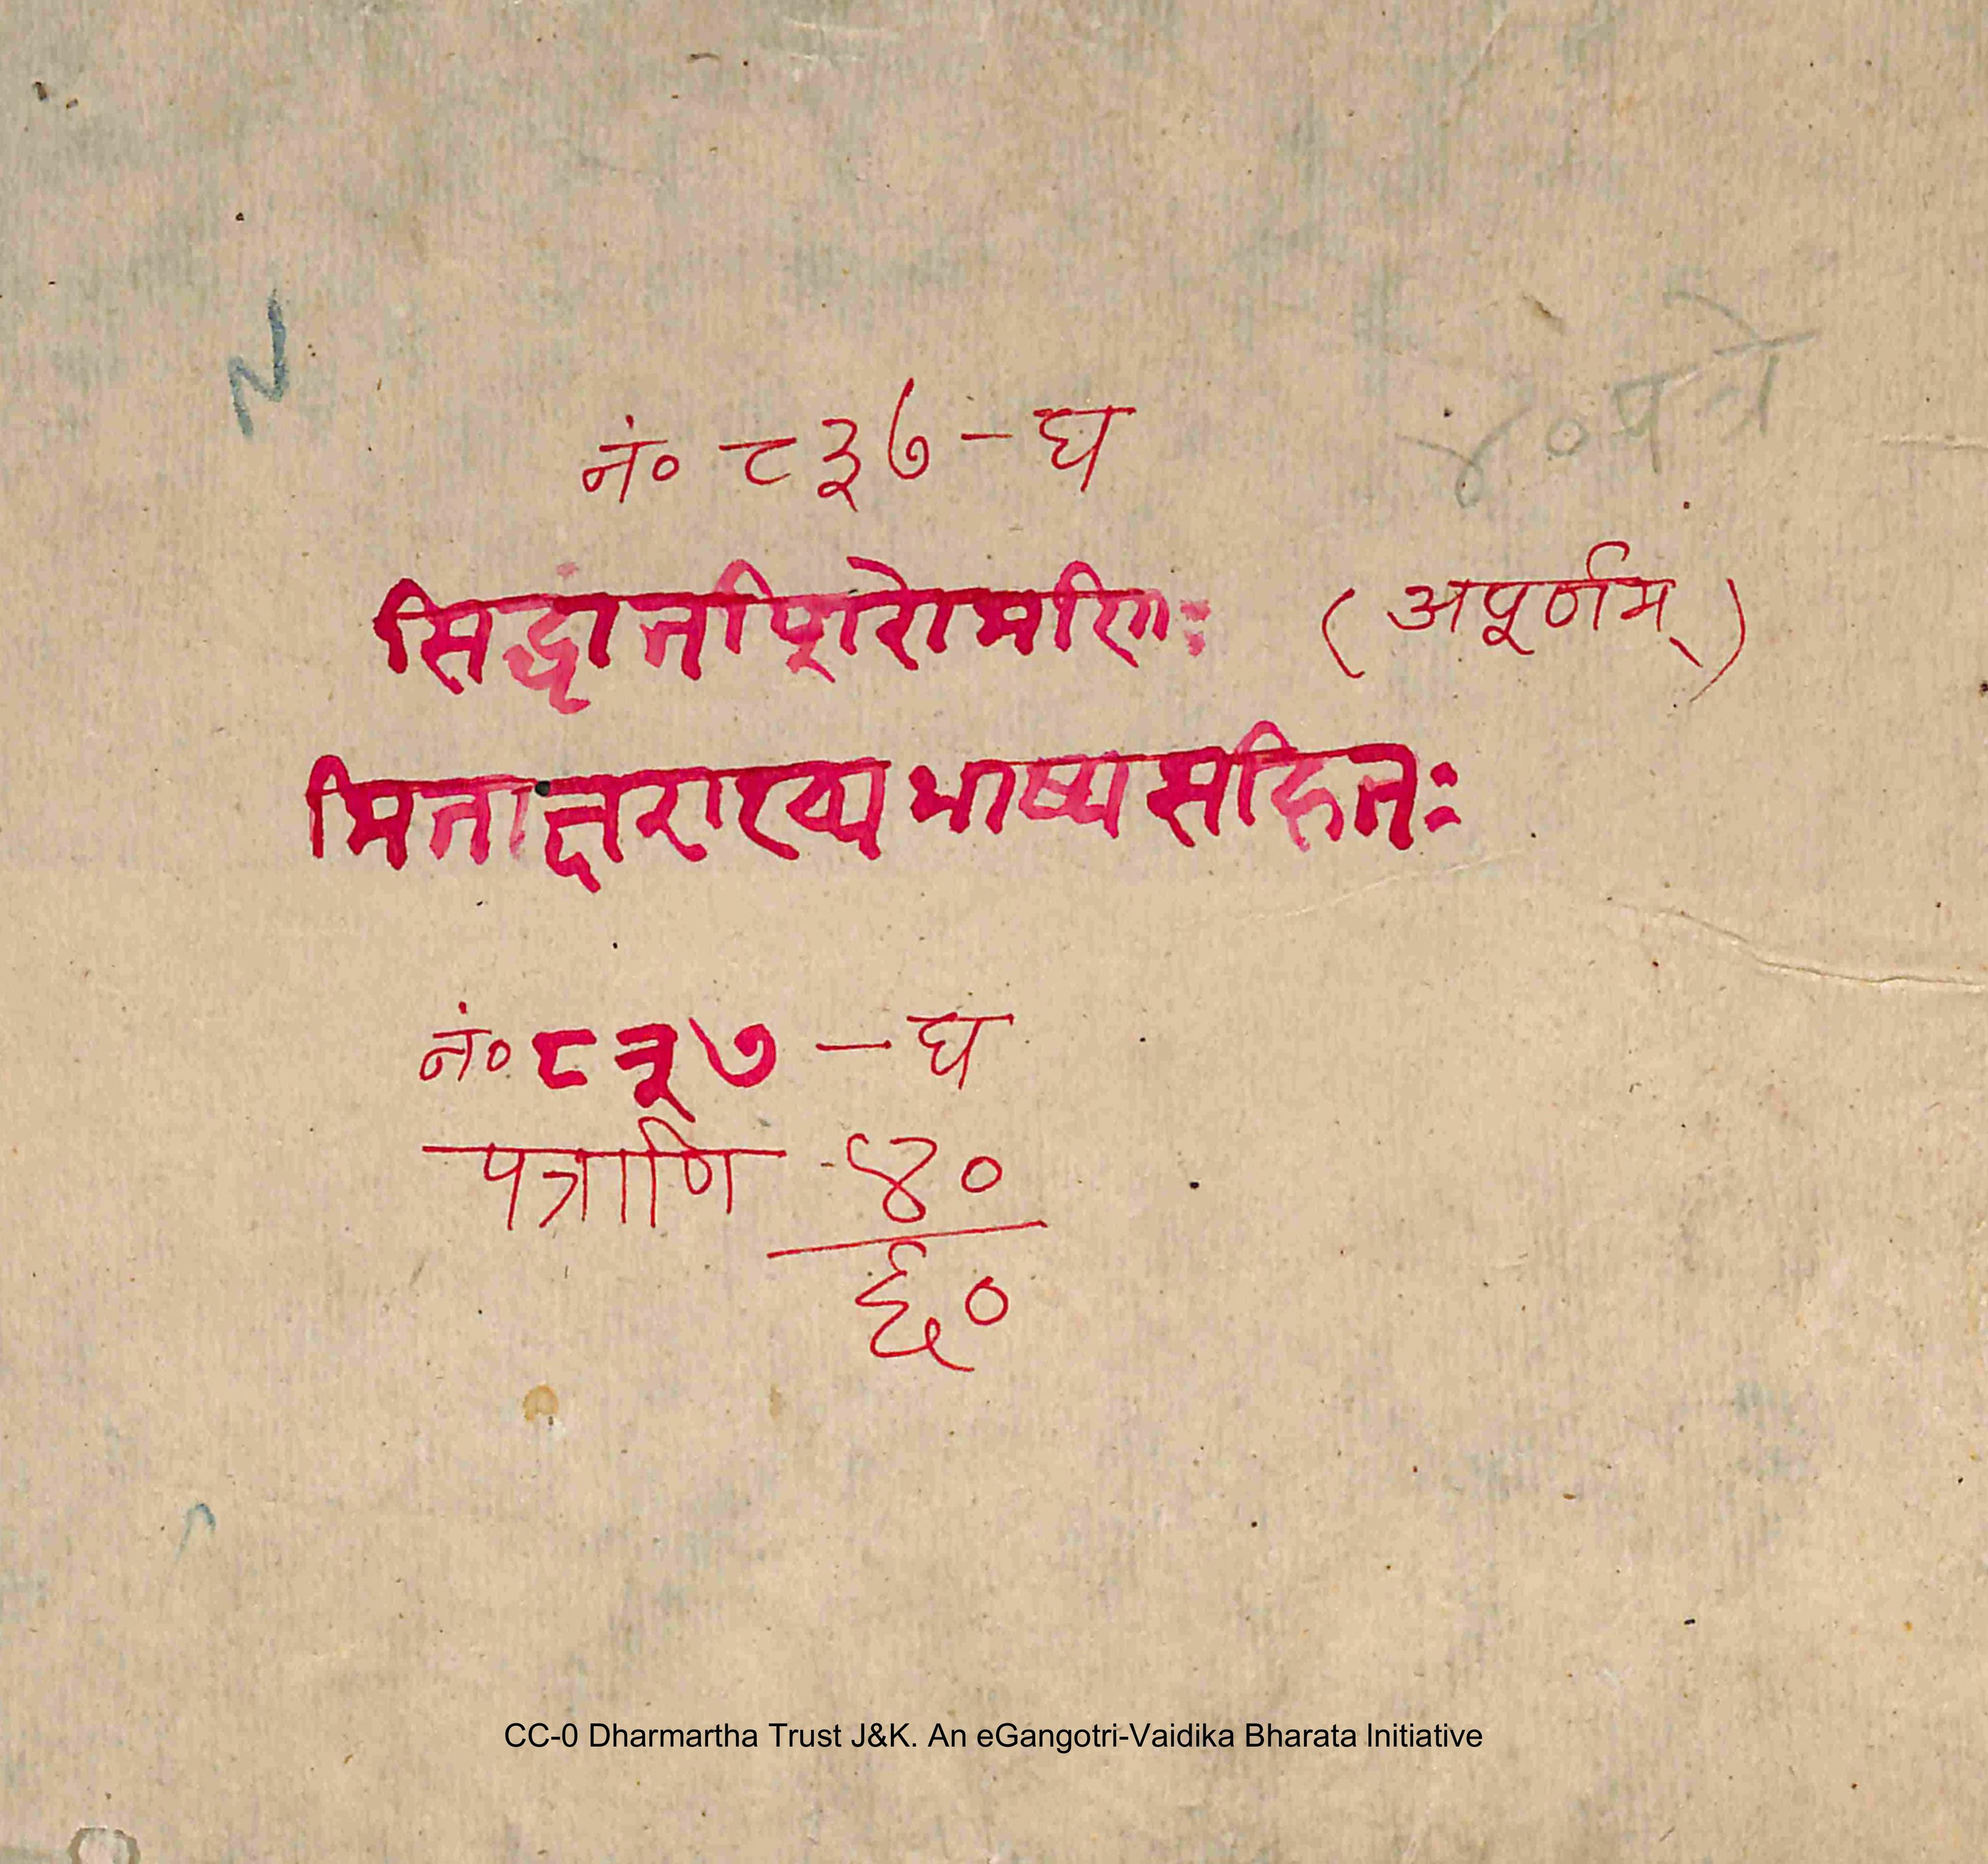 N
४० पत्रे
नं० ८३७ - घ
सिद्धांतशिरोमणिः (अपूर्णम्)
मिताक्षराख्य भाष्य सहितः
नं० ८३७ - घ
पत्राणि - ४०
६०
CC-0 Dharmartha Trust J&K. An eGangotri-Vaidika Bharata Initiative